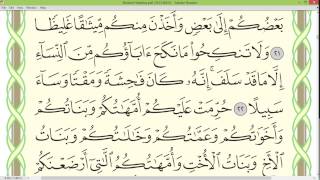 بَعْضُكُمْ إِلَىٰ بَعْضٍ وَأَخَذْنَ مِنكُم مِّيثَٰقًا غَلِيظًا
٢١ وَلَا تَنكِحُوا۟ مَا نَكَحَ ءَابَآؤُكُم مِّنَ ٱلنِّسَآءِ
إِلَّا مَا قَدْ سَلَفَ إِنَّهُۥ كَانَ فَٰحِشَةً وَمَقْتًا وَسَآءَ
سَبِيلًا ٢٢ حُرِّمَتْ عَلَيْكُمْ أُمَّهَٰتُكُمْ وَبَنَاتُكُمْ
وَأَخَوَٰتُكُمْ وَعَمَّٰتُكُمْ وَخَٰلَٰتُكُمْ وَبَنَاتُ
ٱلْأَخِ وَبَنَاتُ ٱلْأُخْتِ وَأُمَّهَٰتُكُمُ ٱلَّٰتِىٓ أَرْضَعْنَكُمْ